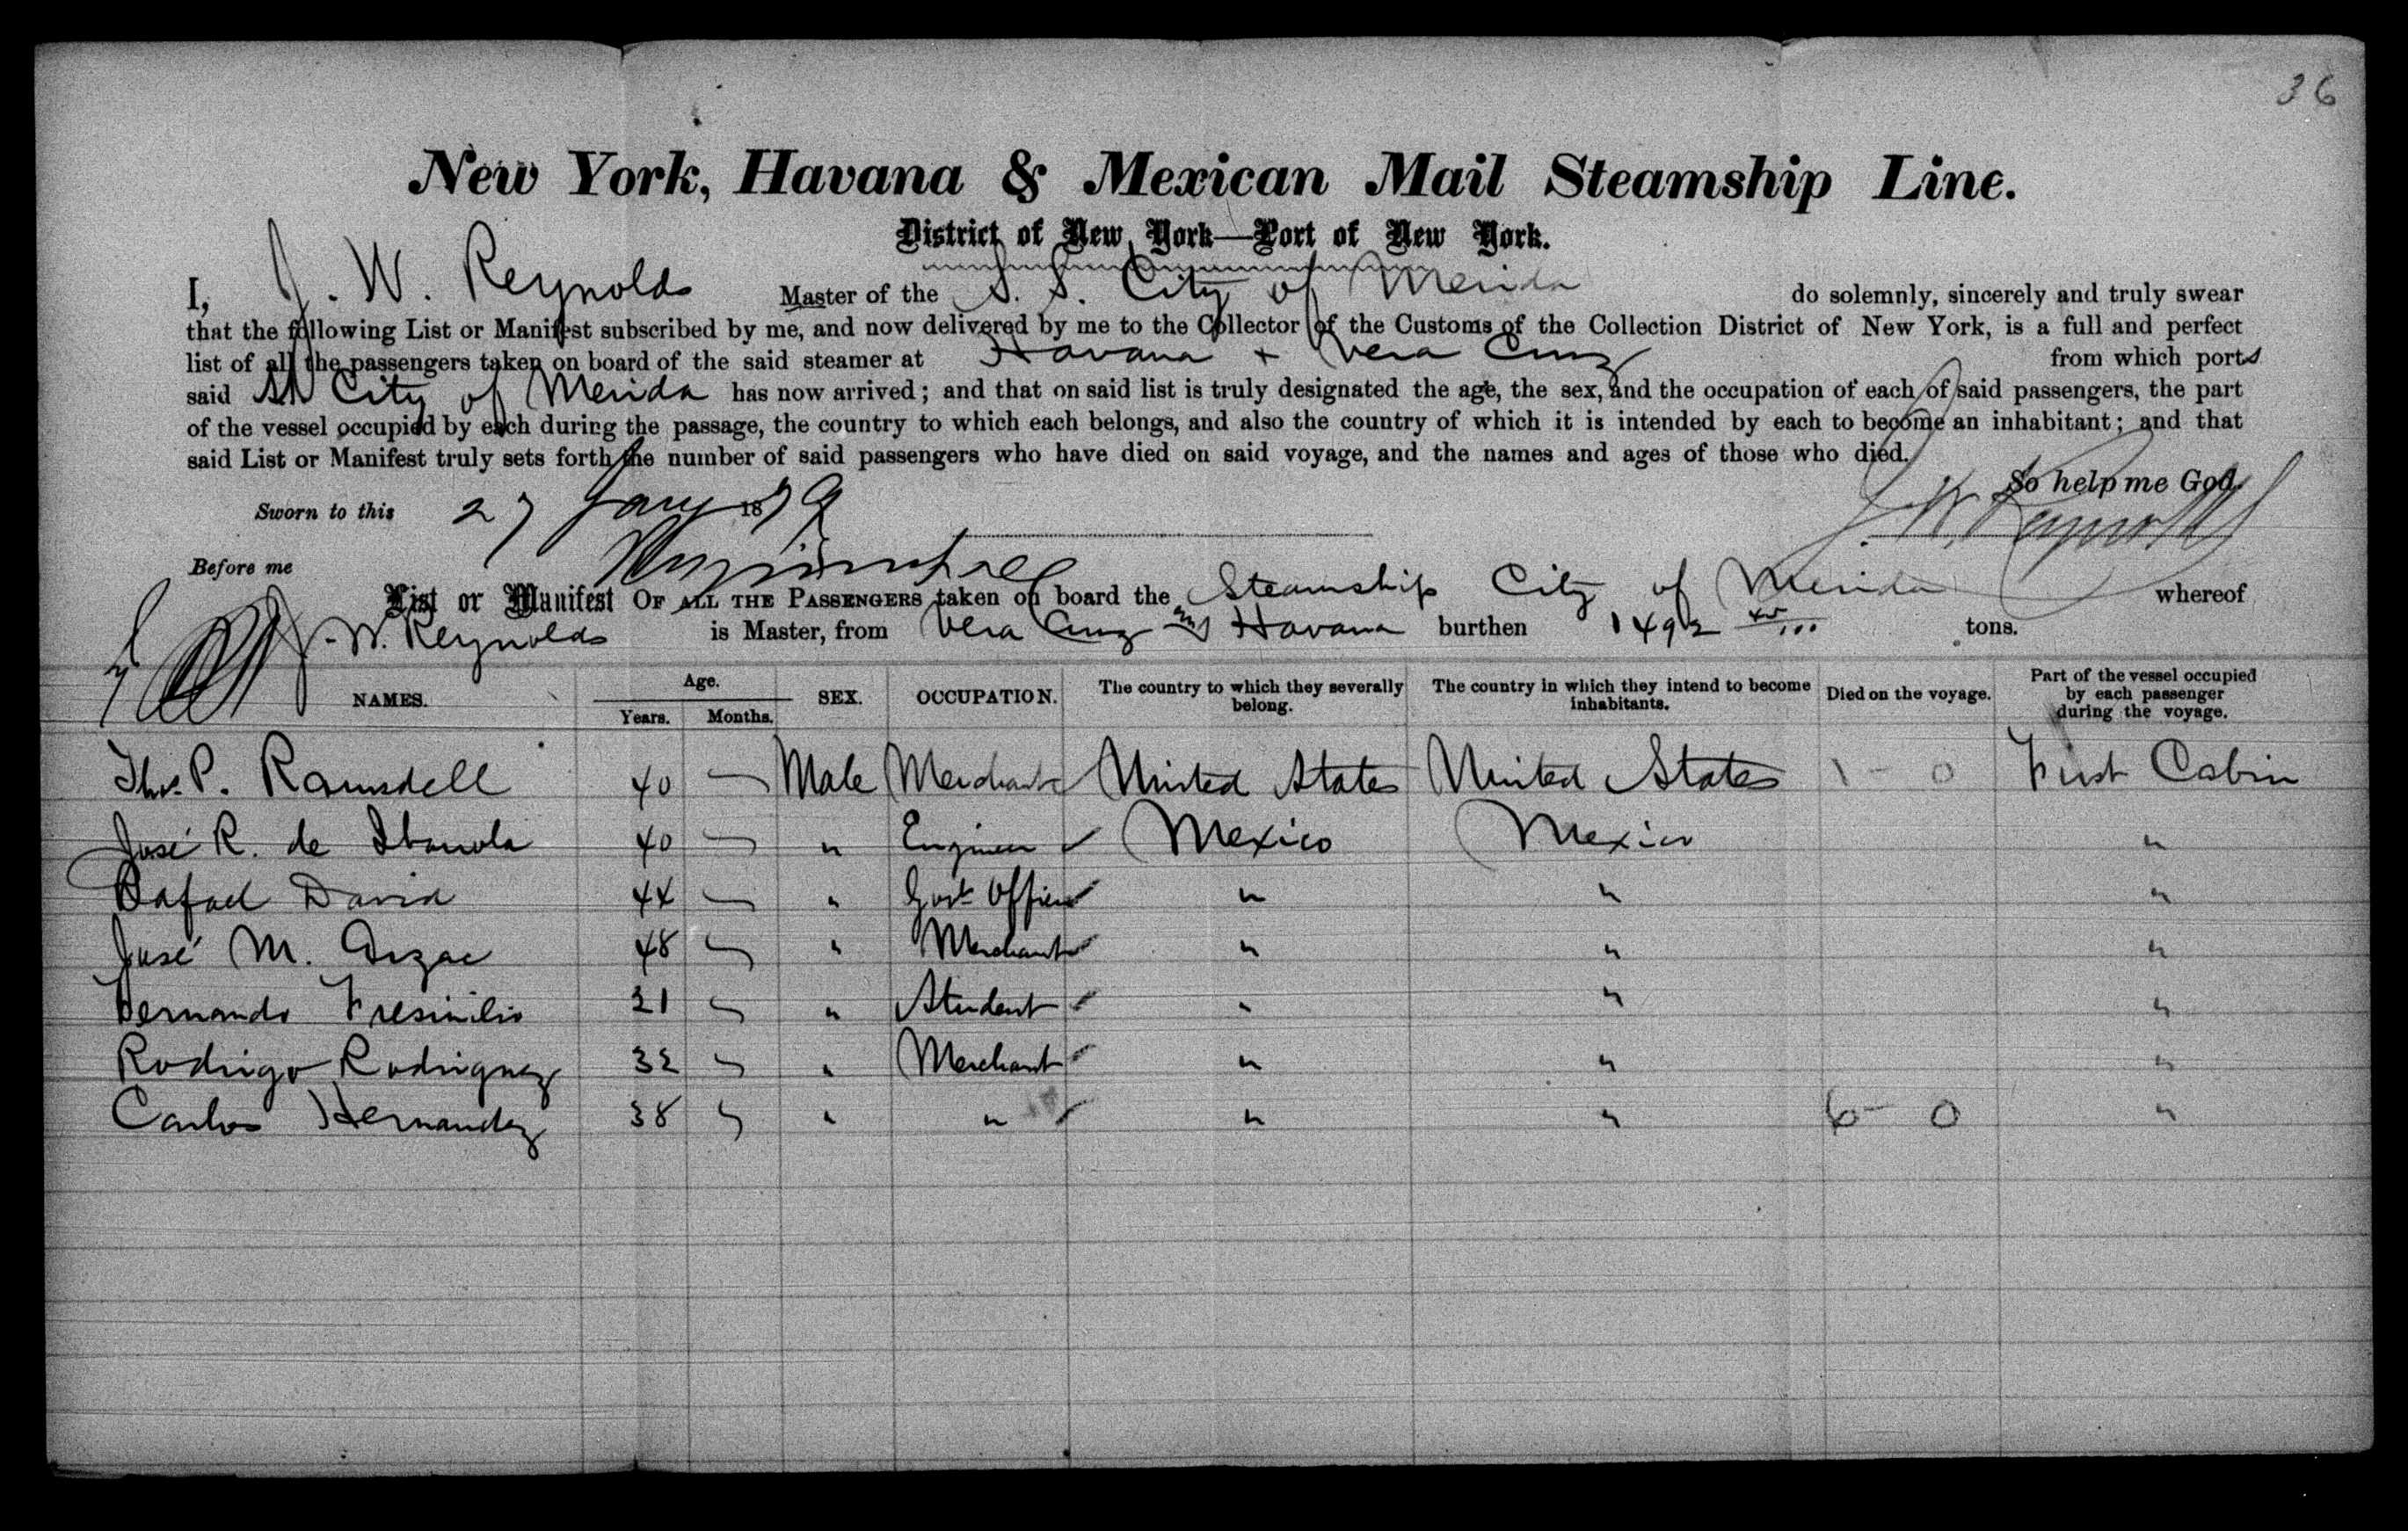 36
New York, Havana & Mexican Mail Steamship Line.
District of New York—Port of New York.
I, J. W. Reynolds Master of the S. S. City of Merida do solemnly, sincerely and truly swear
that the following List or Manifest subscribed by me, and now delivered by me to the Collector of the Customs of the Collection District of New York, is a full and perfect
list of all the passengers taken on board of the said steamer at Havana + Vera Cruz from which ports
said SS City of Merida has now arrived; and that on said list is truly designated the age, the sex, and the occupation of each of said passengers, the part
of the vessel occupied by each during the passage, the country to which each belongs, and also the country of which it is intended by each to become an inhabitant; and that
said List or Manifest truly sets forth the number of said passengers who have died on said voyage, and the names and ages of those who died.
So help me God.
Sworn to this 27 Jany 1879 J. W. Reynolds
Before me
List or Manifest OF ALL THE PASSENGERS taken on board the Steamship City of Merida whereof
J. W. Reynolds is Master, from Vera Cruz and Havana burthen 1492 tons.
NAMES. Age. Years. Months. SEX. OCCUPATION. The country to which they severally belong. The country in which they intend to become inhabitants. Died on the voyage. Part of the vessel occupied by each passenger during the voyage.
Thos. P. Ramsdell 40 — Male Merchant United States United States 1 - 0 First Cabin
José R. de 40 — " Engineer Mexico Mexico "
Rafael David 44 — " Govt Officer " " "
José M. 48 — " Merchant " " "
Fernando 21 — " Student " " "
Rodrigo Rodriguez 32 — " Merchant " " "
Carlos Hernandez 38 — " " " " 6 - 0 "